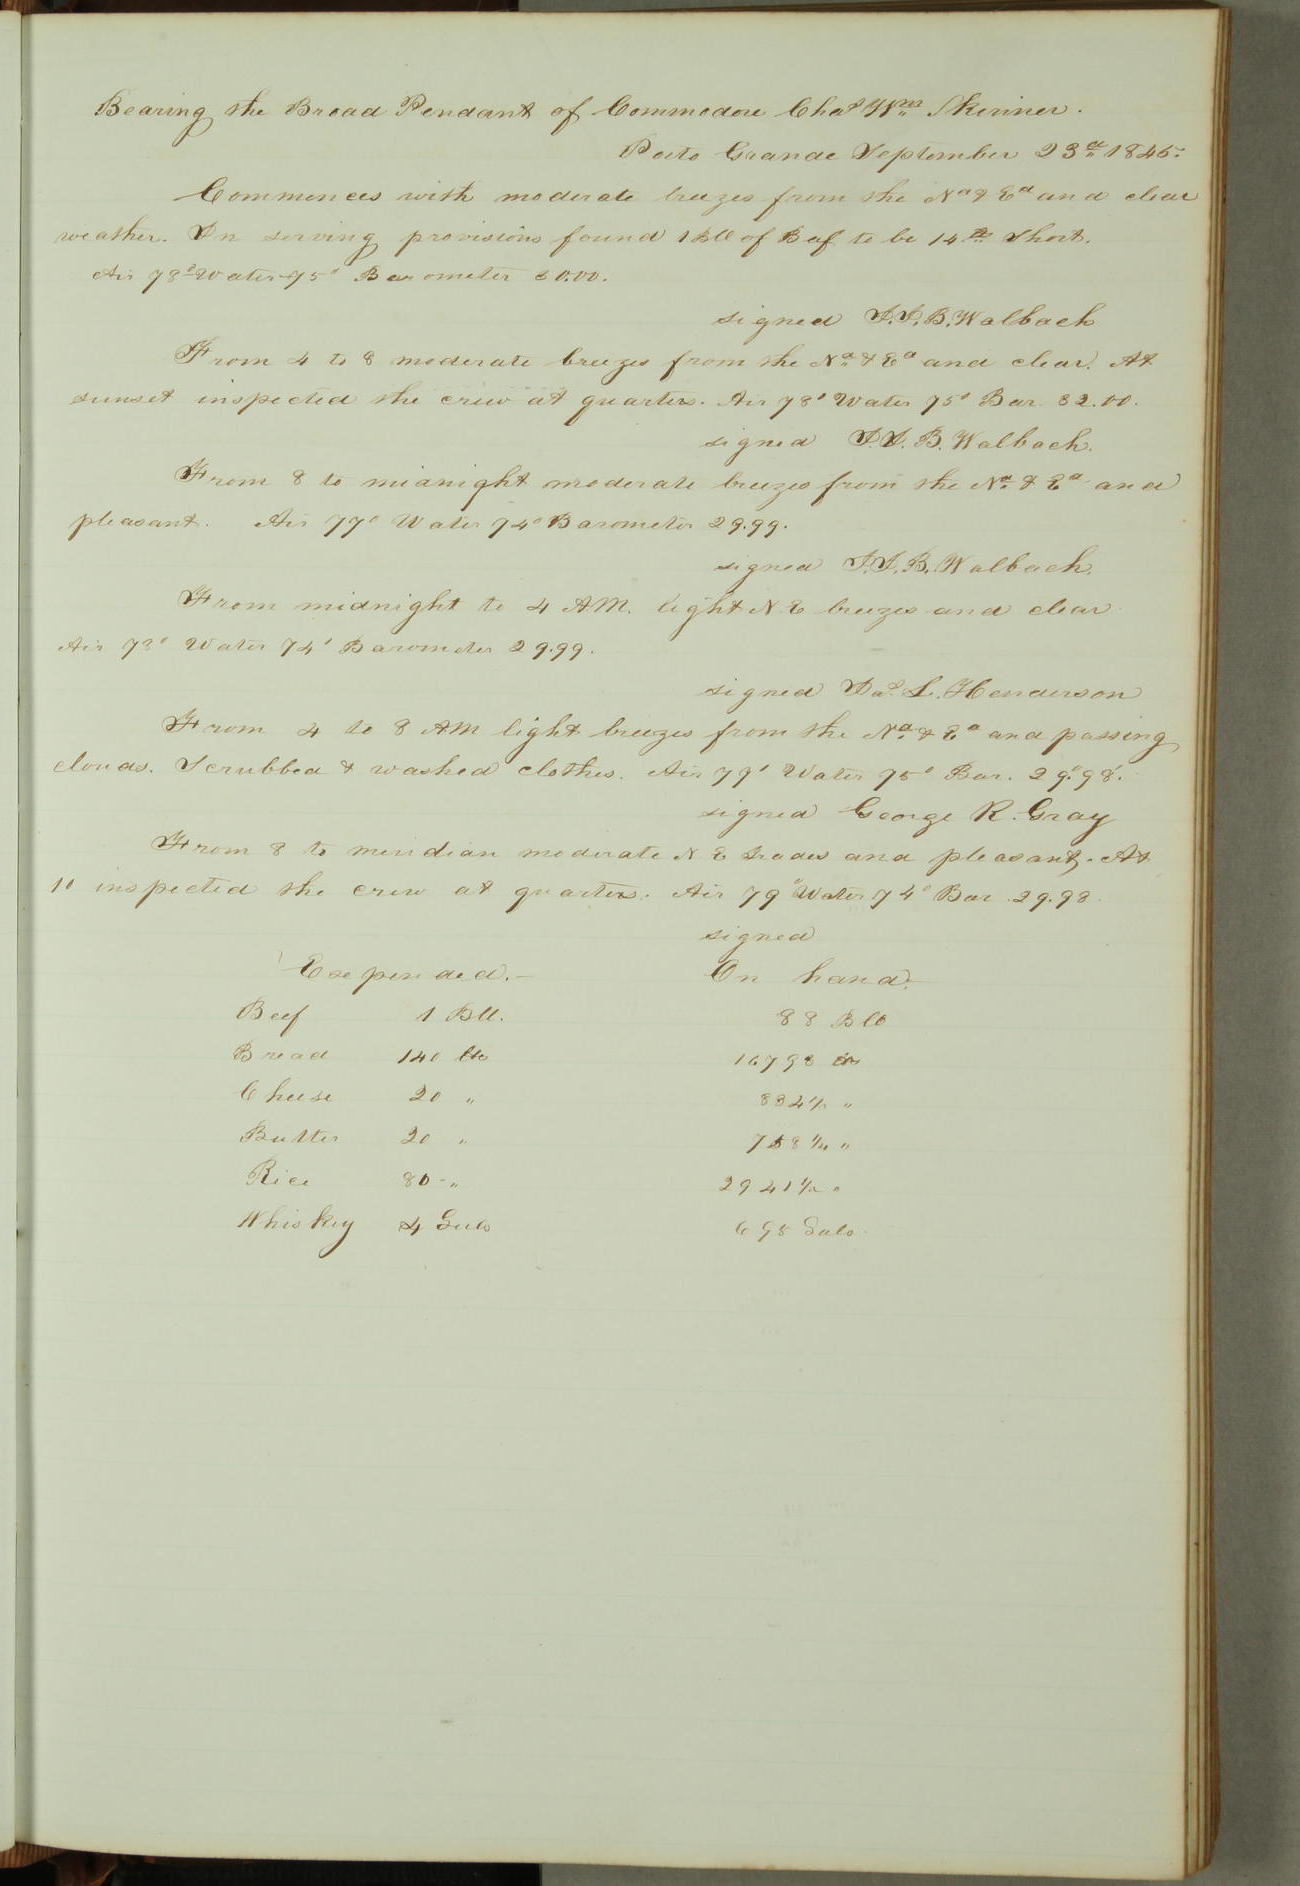 Bearing the Broad Pendant of Commodore Chas Wm Skinner.
Porto Grande September 23d 1845.
Commences with moderate breezes from the Nd & Ed and clear
weather. In serving provisions found 1 Bll of Beef to be 14 lbs Short.
Air 78° Water 75° Barometer 30.00.
signed J.J.B. Walbach
From 4 to 8 moderate breezes from the Nd & Ed and clear. At
sunset inspected the crew at quarters. Air 78° Water 75° Bar 32.00.
signed J.J.B. Walbach.
From 8 to midnight moderate breezes from the Nd & Ed and
pleasant. Air 77° Water 74° Barometer 29.99.
signed J.J.B. Walbach.
From midnight to 4 AM. light N E breezes and clear
Air 78° Water 74° Barometer 29.99.
signed Jas L. Henderson
From 4 to 8 AM light breezes from the Nd & Ed and passing
clouds. Scrubbed & washed clothes. Air 79° Water 75° Bar. 29.98.
signed George R. Gray
From 8 to meridian moderate N E trades and pleasant. At
10 inspected the crew at quarters. Air 79° Water 74° Bar 29.98.
signed
Expended. On hand.
Beef 1 Bll. 88 Bls
Bread 140 lbs 16798 lbs
Cheese 20 " 882 1/2 "
Butter 20 " 758 1/4 "
Rice 80 " 2941 1/2 "
Whiskey 4 Gals 695 Gals